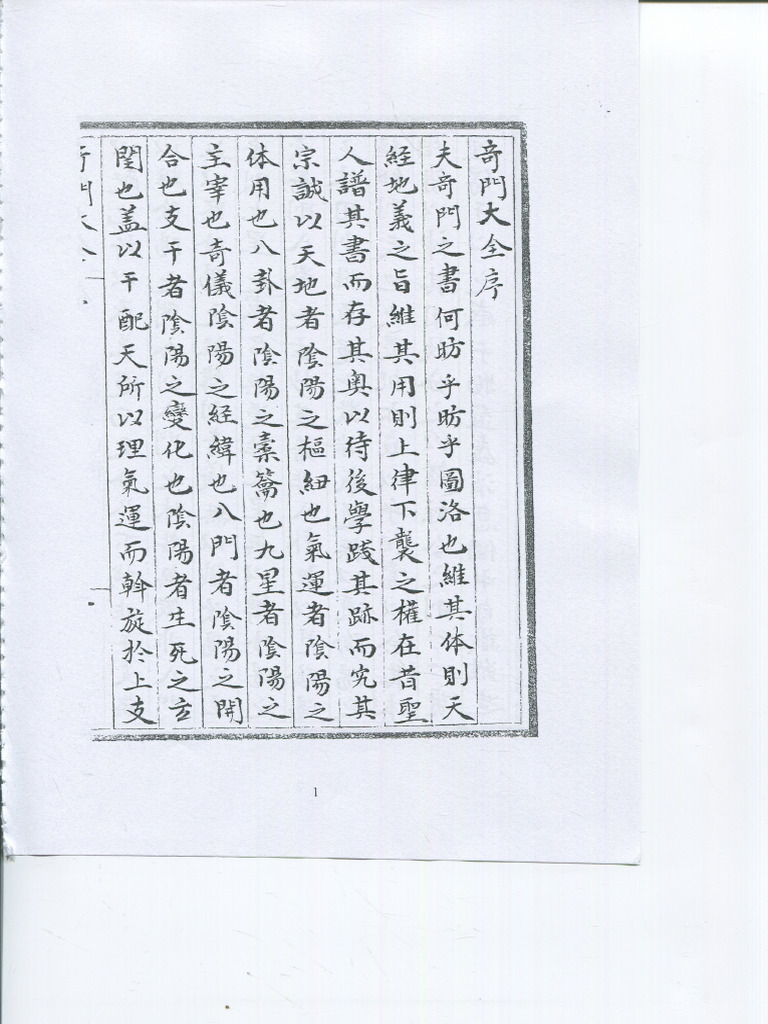 奇門大全序
夫奇門之書何昉乎昉乎圖洛也維其体則天
經地義之旨維其用則上律下襲之權在昔聖
人譜其書而存其奧以待後學踐其跡而究其
宗誠以天地者陰陽之樞紐也氣運者陰陽之
体用也八卦者陰陽之橐籥也九星者陰陽之
主宰也奇儀陰陽之経緯也八門者陰陽之開
合也支干者陰陽之變化也陰陽者生死之玄
閏也盖以干配天所以理氣運而斡旋於上支
1